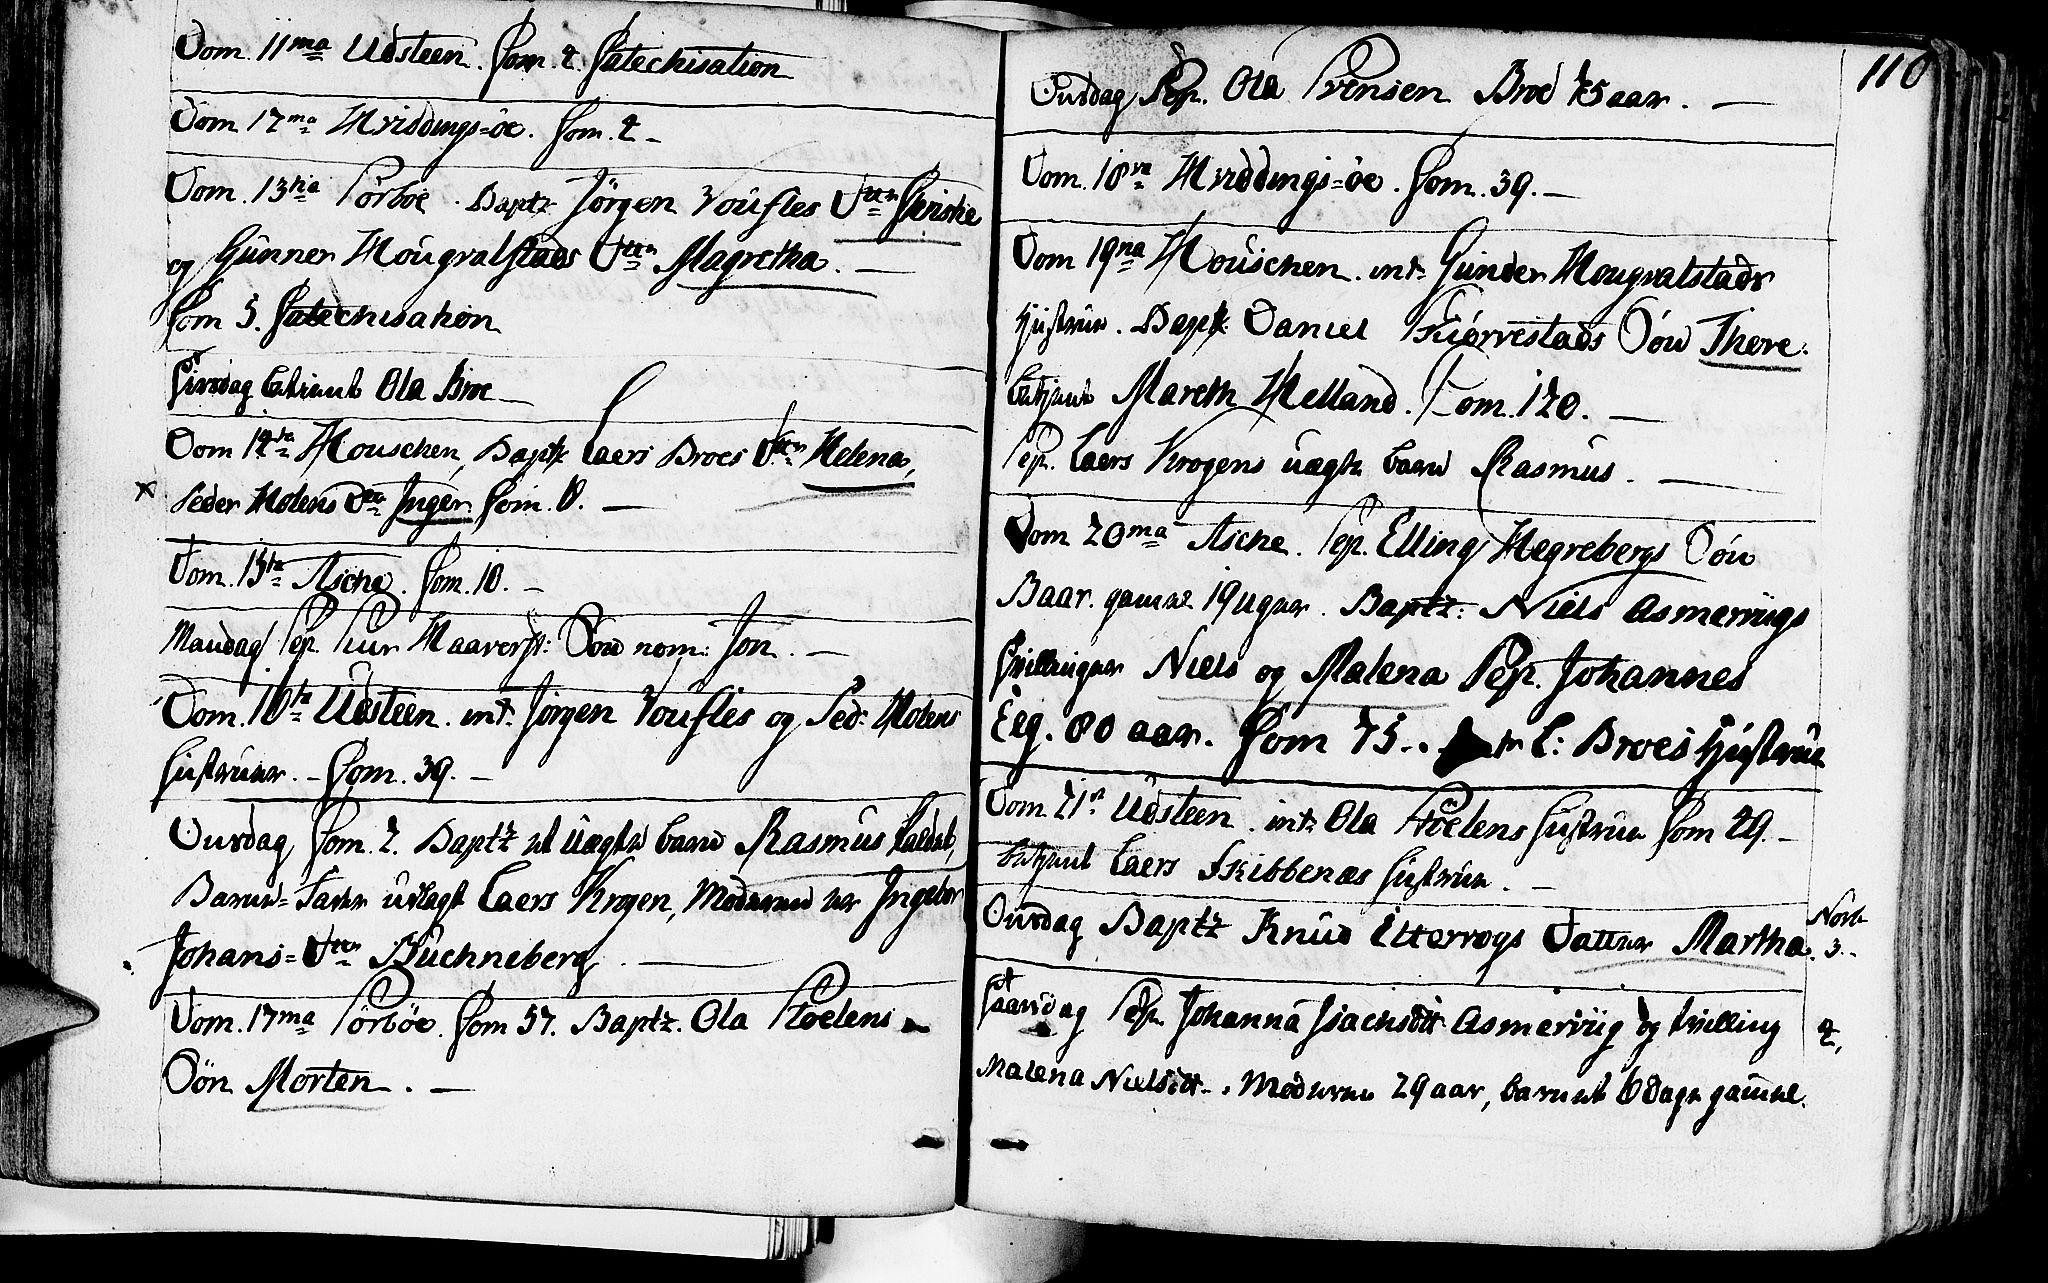 Dom. 11ma Udsteen. Com. 4. Catechisation
Dom. 12ma Hviddings=öe. Com. 4 -
Dom. 13tia Sörböe. Baptz Jörgen Voufles Dttr Christie
og Gunner Hougvalstads Dttr Magretha. —
Com 5. Catechisation
Tirsdag betient Ola Broe —
Dom 14ta Houschen, Baptz Laers Broes Dttr Helena,
x Peder Holens Dtr Inger. Com. 8. —
Dom. 15ta Asche. Com. 10. -
Mandag Sep. Siur Haaverst: Sön nom: Jon. —
Dom. 16ta Udsteen. int. Jörgen Voufles og Ped: Holens
Hustruer. - Com. 39. -
Onsdag Com. 2. Baptz et uægte barn Rasmus kaldet,
Barne=Fader udlagt Laers Krogen, Moderen er Ingebor
Johans=Dttr Buchneberg. —
Dom. 17ma Sörböe. Com 57. Baptz. Ola Floelens
Sön Morten. —
110
Onsdag Sep. Ola Svensen Broe 75 aar. —
Dom. 18va Hviddings=öe. Com. 39. -
Dom 19na Houschen. int. Gunder Hougvalstads
Hustrue. Baptz: Daniel Fiörrestads Sön There.
betient Mareth Helland. Com. 120. —
Sep. Laers Krogens uægte barn Rasmus. —
Dom 20ma Asche. Sep. Elling Hegrebergs Sön
Baar. gamel 19 uger. Baptz: Niels Asmerviigs
tvillinger Niels og Malena Sep. Johannes
Eeg. 80 aar. Com 75. L: Broes Hustrue
Dom 21a Udsteen. int. Ola Floelens Hustrue Com 49. -
betient Laers Skibbenæs Hustrue. —
Onsdag Baptz Knud Etterrogs Datter Martha. Novb. 3. -
Løverdag Sep. Johanna Isachsdtt Asmerviig og tvilling 4,
Malena Nielsdtt. Moderen 29 aar, barnet 6 dage gamel.